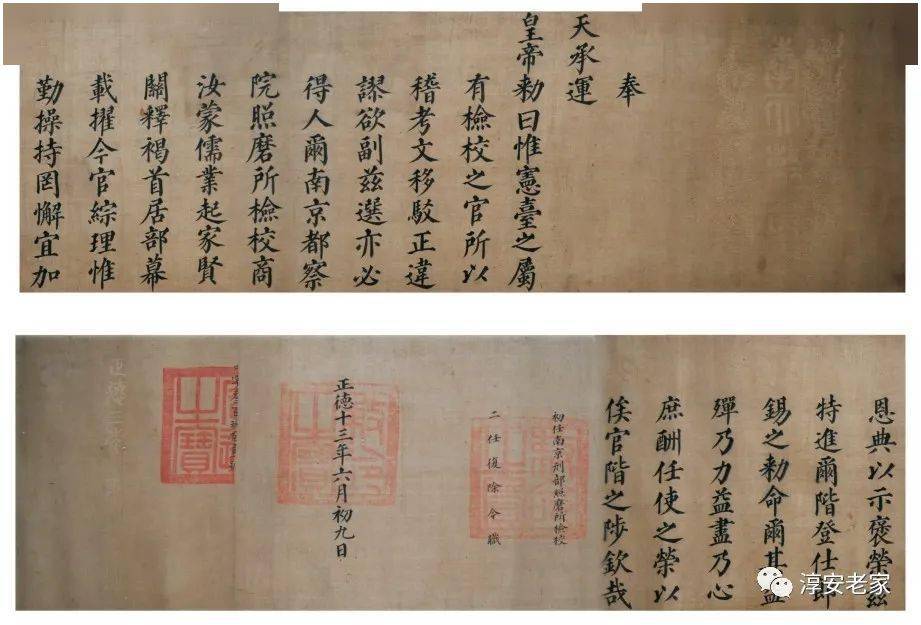 奉
天承運
皇帝勅曰惟憲臺之屬
有檢校之官所以
稽考文移駁正違
謬欲副茲選亦必
得人爾南京都察
院照磨所檢校商
汝蒙儒業起家賢
關釋褐首居部幕
載擢今官綜理惟
勤操持罔懈宜加
恩典以示褒榮茲
特進爾階登仕郎
錫之勅命爾其益
殫乃力益盡乃心
庶酬任使之榮以
俟官階之陟欽哉
初任南京刑部照磨所檢校
二任復除今職
正德十三年六月初九日
之寶
淳安老家